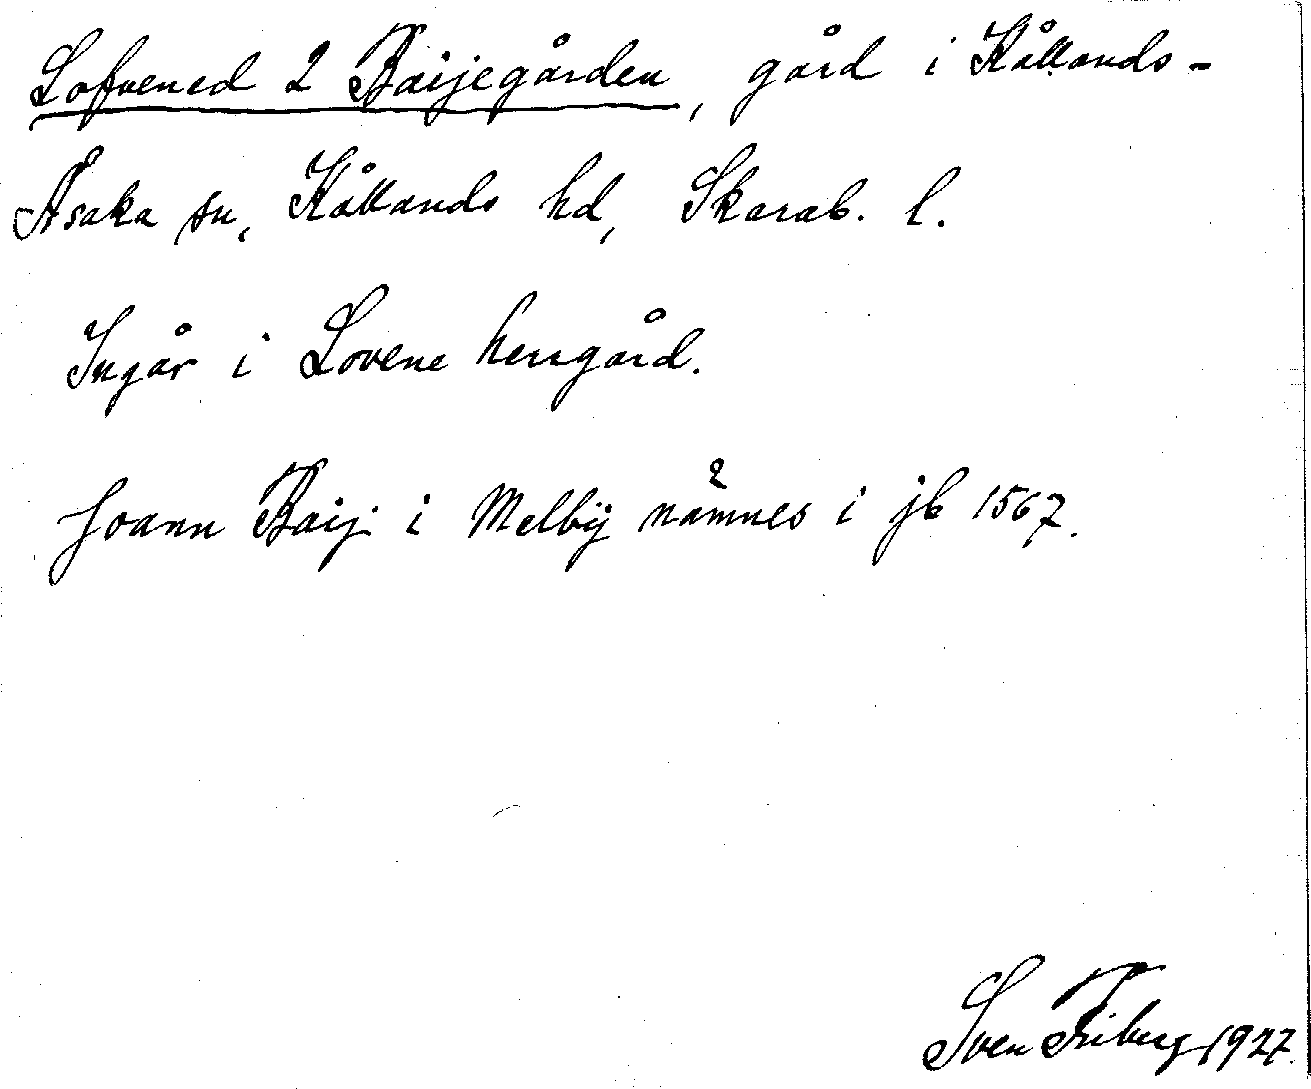 Lofvened 2 Baijegården, gård i Kållands-
Åsaka sn, Kållands hd, Skarab. l.
Ingår i Lovene herrgård.
Joann Baij i Melbÿ nämnes i jb 1567.
Sven Friberg 1927.